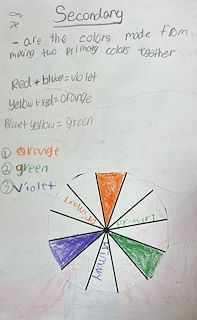 Secondary
- are the colors made from
mixing two primary colors together
Red + blue = violet
Yellow + red = orange
Blue + yellow = green
① Orange
② green
③ Violet
primary
primary
primary